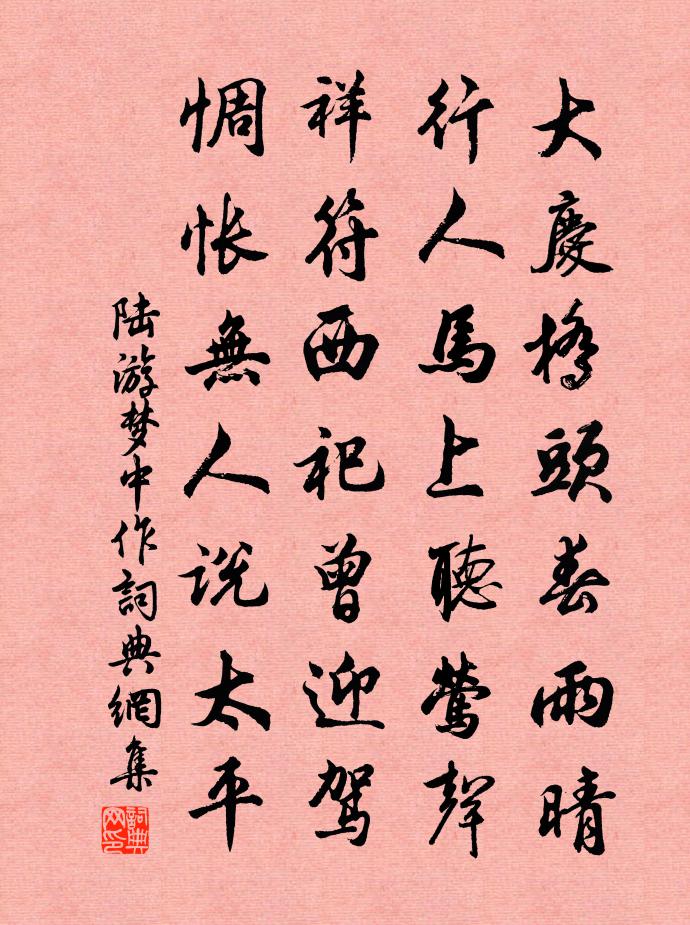 大慶橋頭春雨晴
行人馬上聽鶯聲
祥符西祀曾迎駕
惆怅無人说太平
陆游梦中作詞典網集
詞典网印